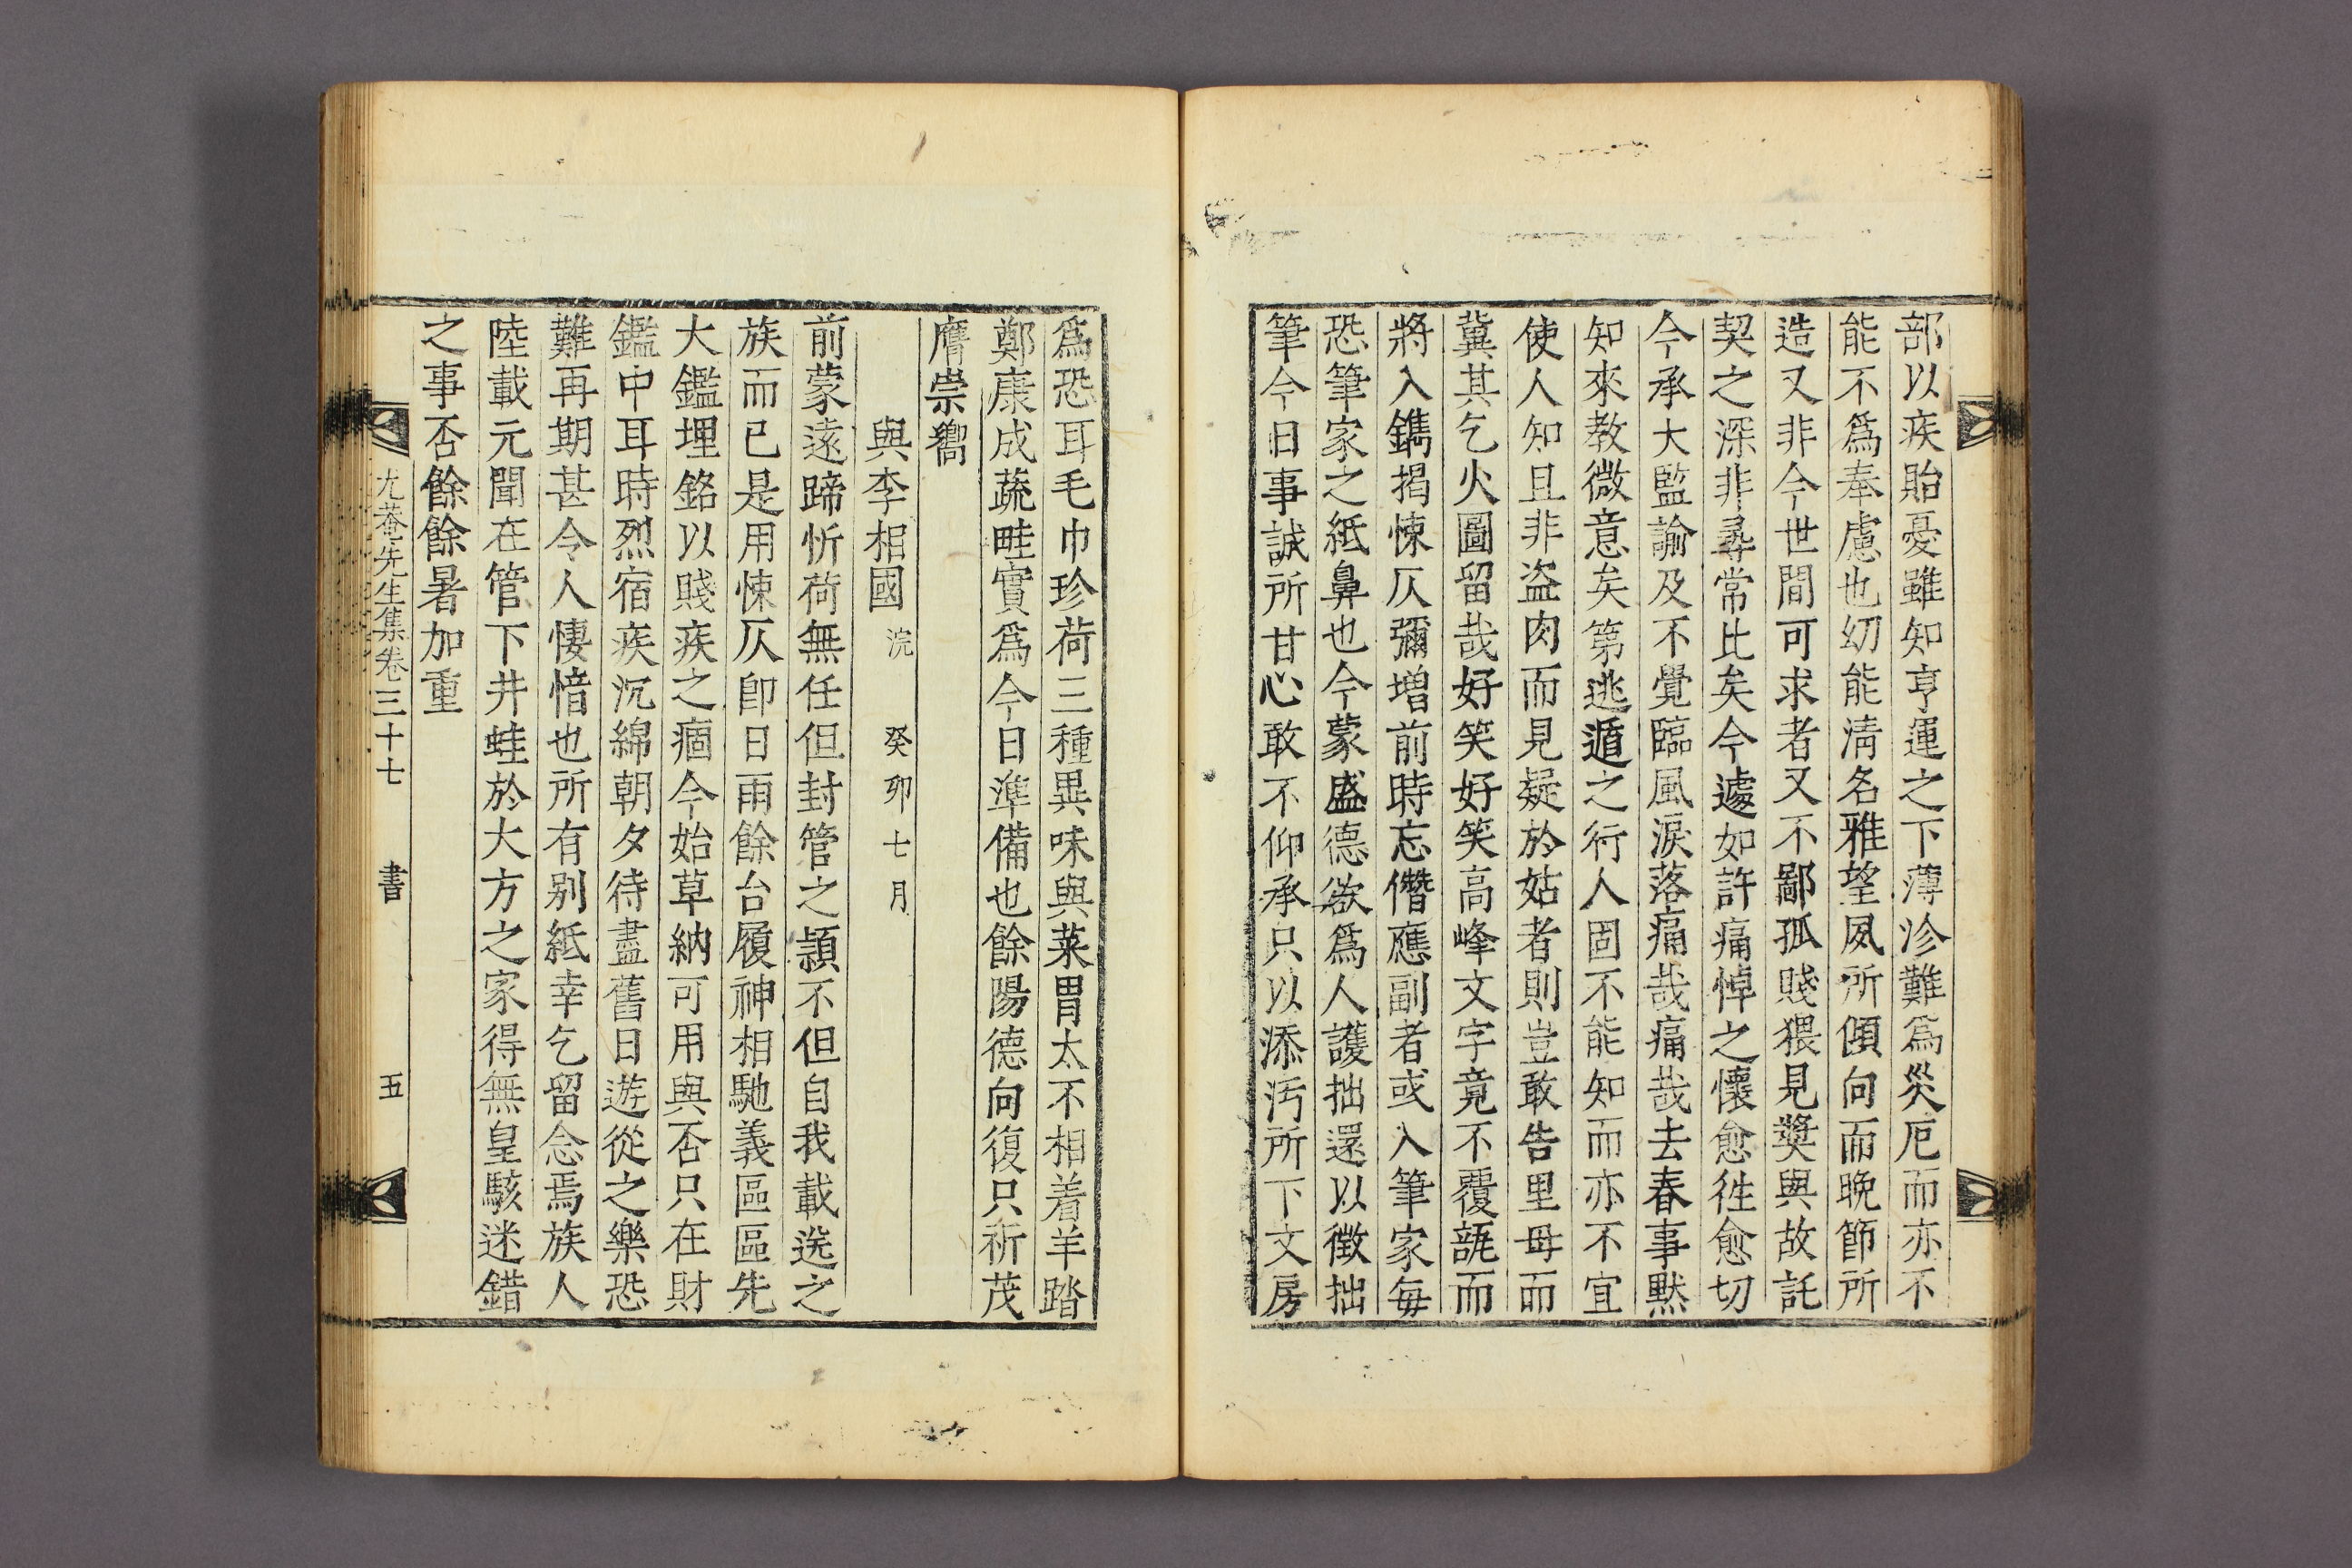 部以疾貽憂雖知亨運之下薄沴難爲災厄而亦不
能不爲奉慮也㓜能淸名雅望夙所傾向而晚節所
造又非今世間可求者又不鄙孤賤猥見奬與故託
契之深非尋常比矣今遽如許痛悼之懷愈徃愈切
今承大監諭及不覺臨風淚落痛哉痛哉去春事黙
知來教微意矣第逃遁之行人固不能知而亦不宜
使人知且非盗肉而見疑於姑者則豈敢告里母而
冀其乞火圖留哉好笑好笑高峰文字竟不覆瓿而
將入鐫揭悚仄彌增前時忘僭應副者或入筆家每
恐筆家之紙鼻也今蒙盛德欲爲人護拙還以徵拙
筆今日事誠所甘心敢不仰承只以添汚所下文房
爲恐耳毛巾珍荷三種異味與菜胃太不相着羊踏
鄭康成蔬畦實爲今日準備也餘陽德向復只祈茂
膺崇嚮
與李相國 浣 癸卯七月
前蒙遠蹄忻荷無任但封管之頴不但自我載送之
族而已是用悚仄卽日雨餘台履神相馳義區區先
大鑑埋銘以賤疾之痼今始草納可用與否只在財
鑑中耳時烈宿疾沉綿朝夕待盡舊日遊從之樂恐
難再期甚令人悽愔也所有别紙幸乞留念焉族人
陸載元聞在管下井蛙於大方之家得無皇駭迷錯
之事否餘餘暑加重
尤菴先生集卷三十七 書 五